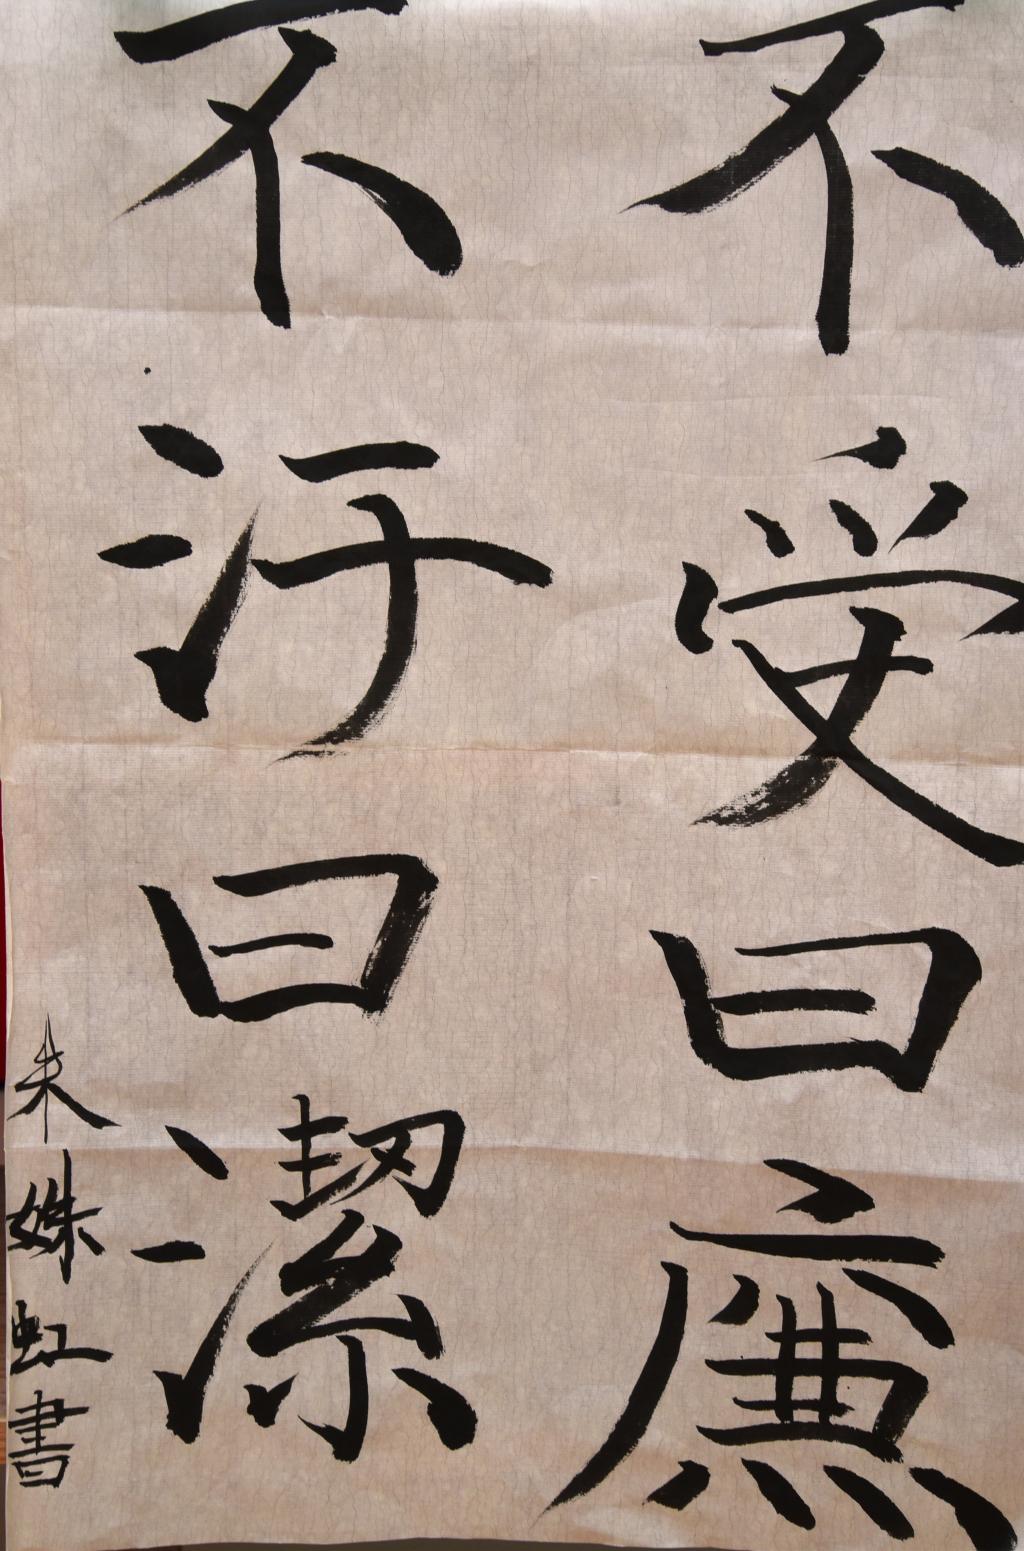 不受曰廉
不汙曰潔
朱姝虹書